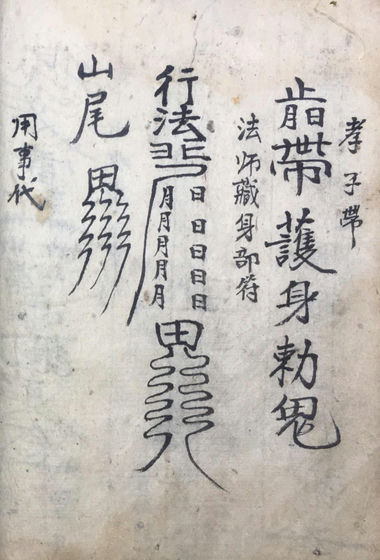 孝子帶
帶護身勅鬼
法师藏身部符
行法
日日日日日
月月月月月
山尾
用事代